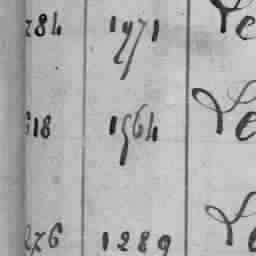 284 1971 Le
618 1564 Le
276 1289 Le